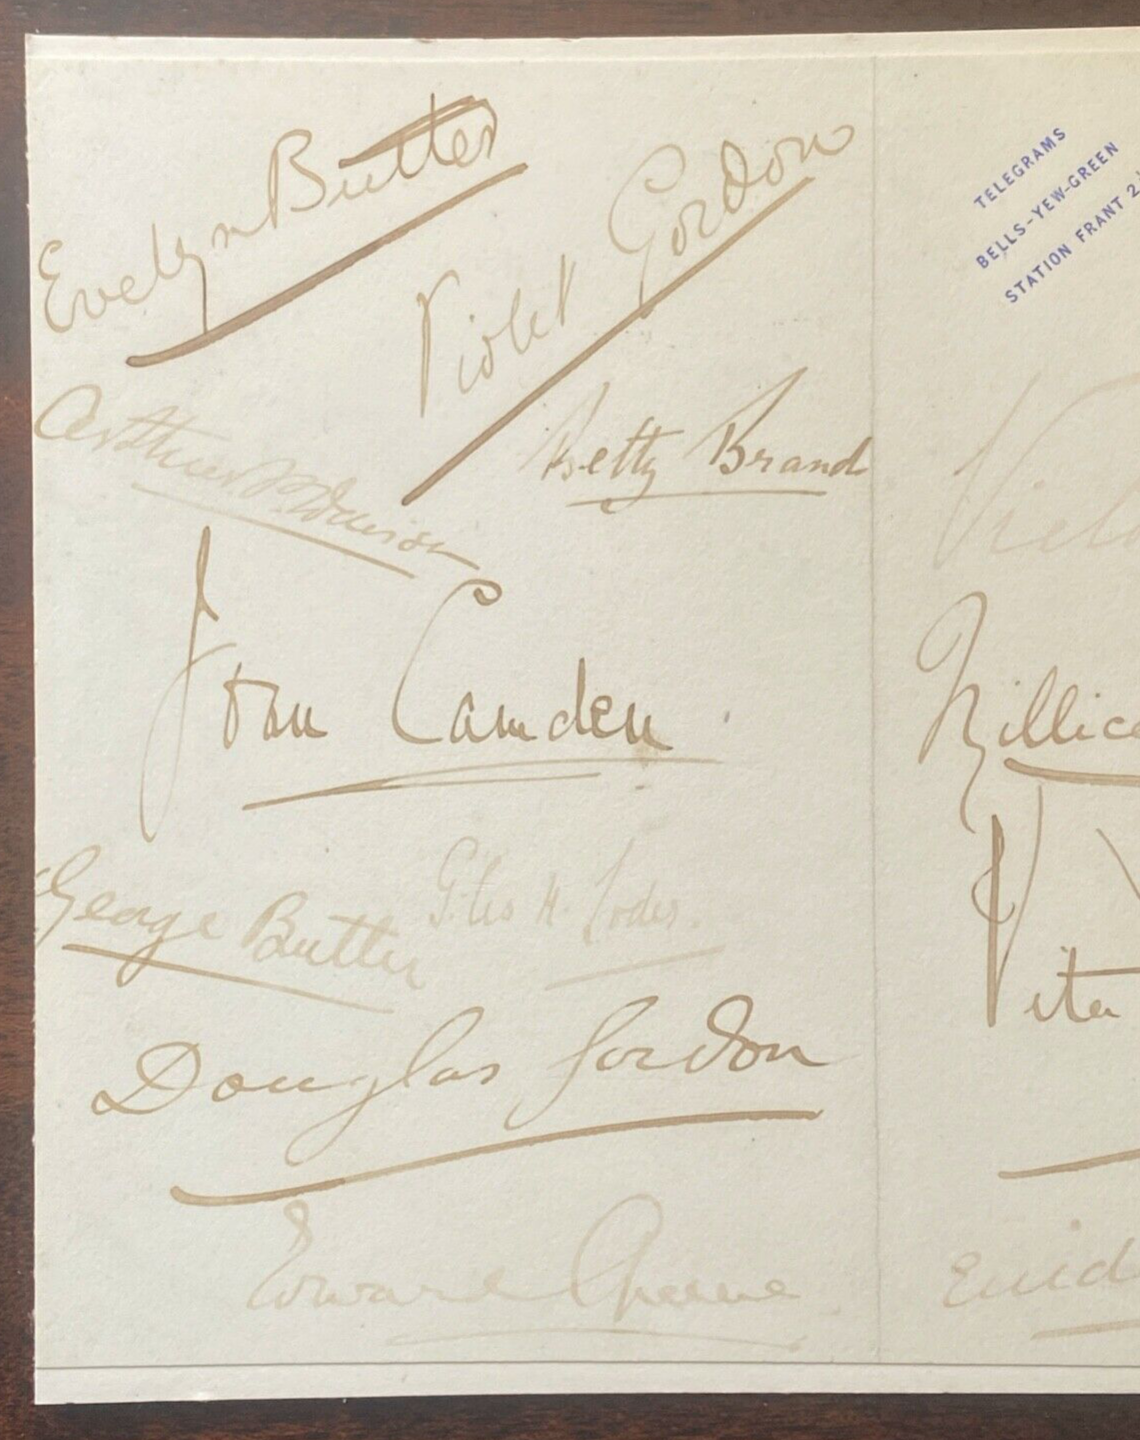 Evelyn Butter
Violet Gordon
Arthur
Betty Brand
Joan Camden
George Butter
Giles H.
Douglas Gordon
Edward
TELEGRAMS
BELLS-YEW-GREEN
STATION FRANT 2
Millice
Vita
Enid